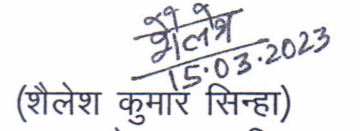 शैलेश
15.03.2023
(शैलेश कुमार सिन्हा)